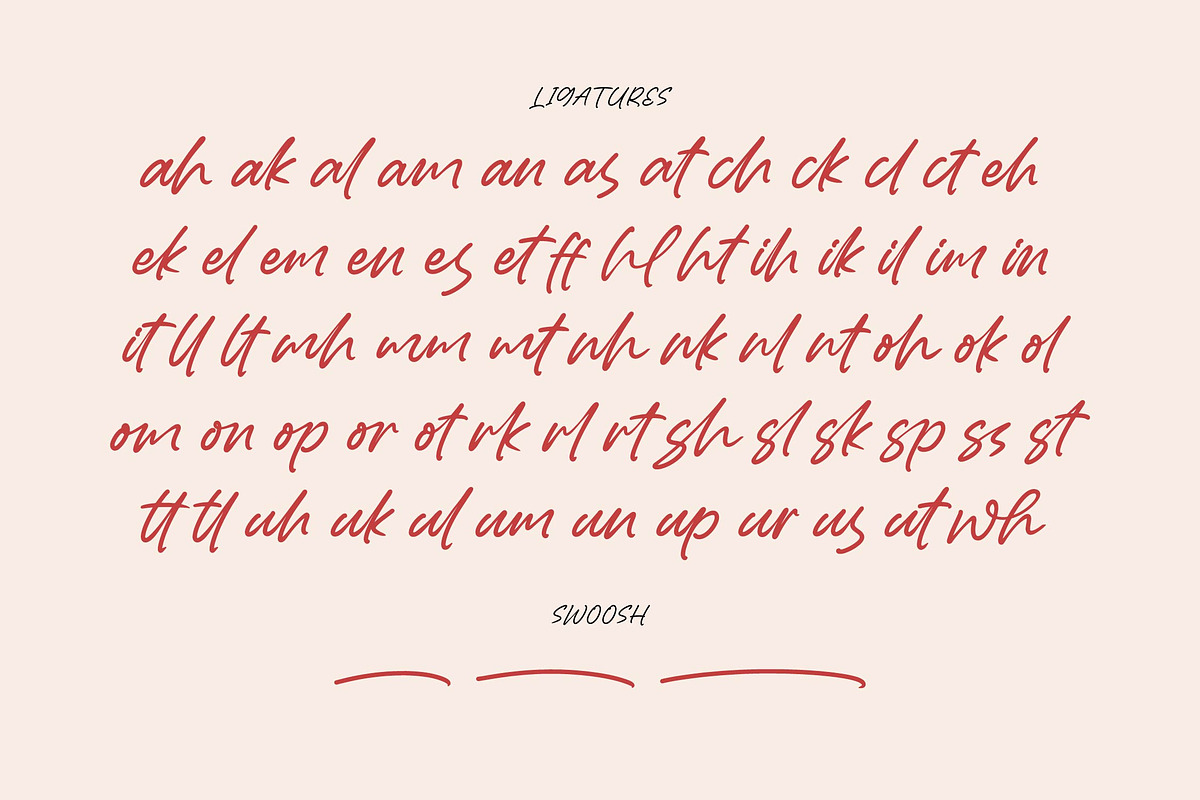 LIGATURES
ah ak al am an as at ch ck cl ct eh
ek el em en es et ff hl ht ih ik il im in
it ll lt mh mm mt nh nk nl nt oh ok ol
om on op or ot rk rl rt sh sl sk sp ss st
tt tl uh uk ul um un up ur us ut wh
SWOOSH